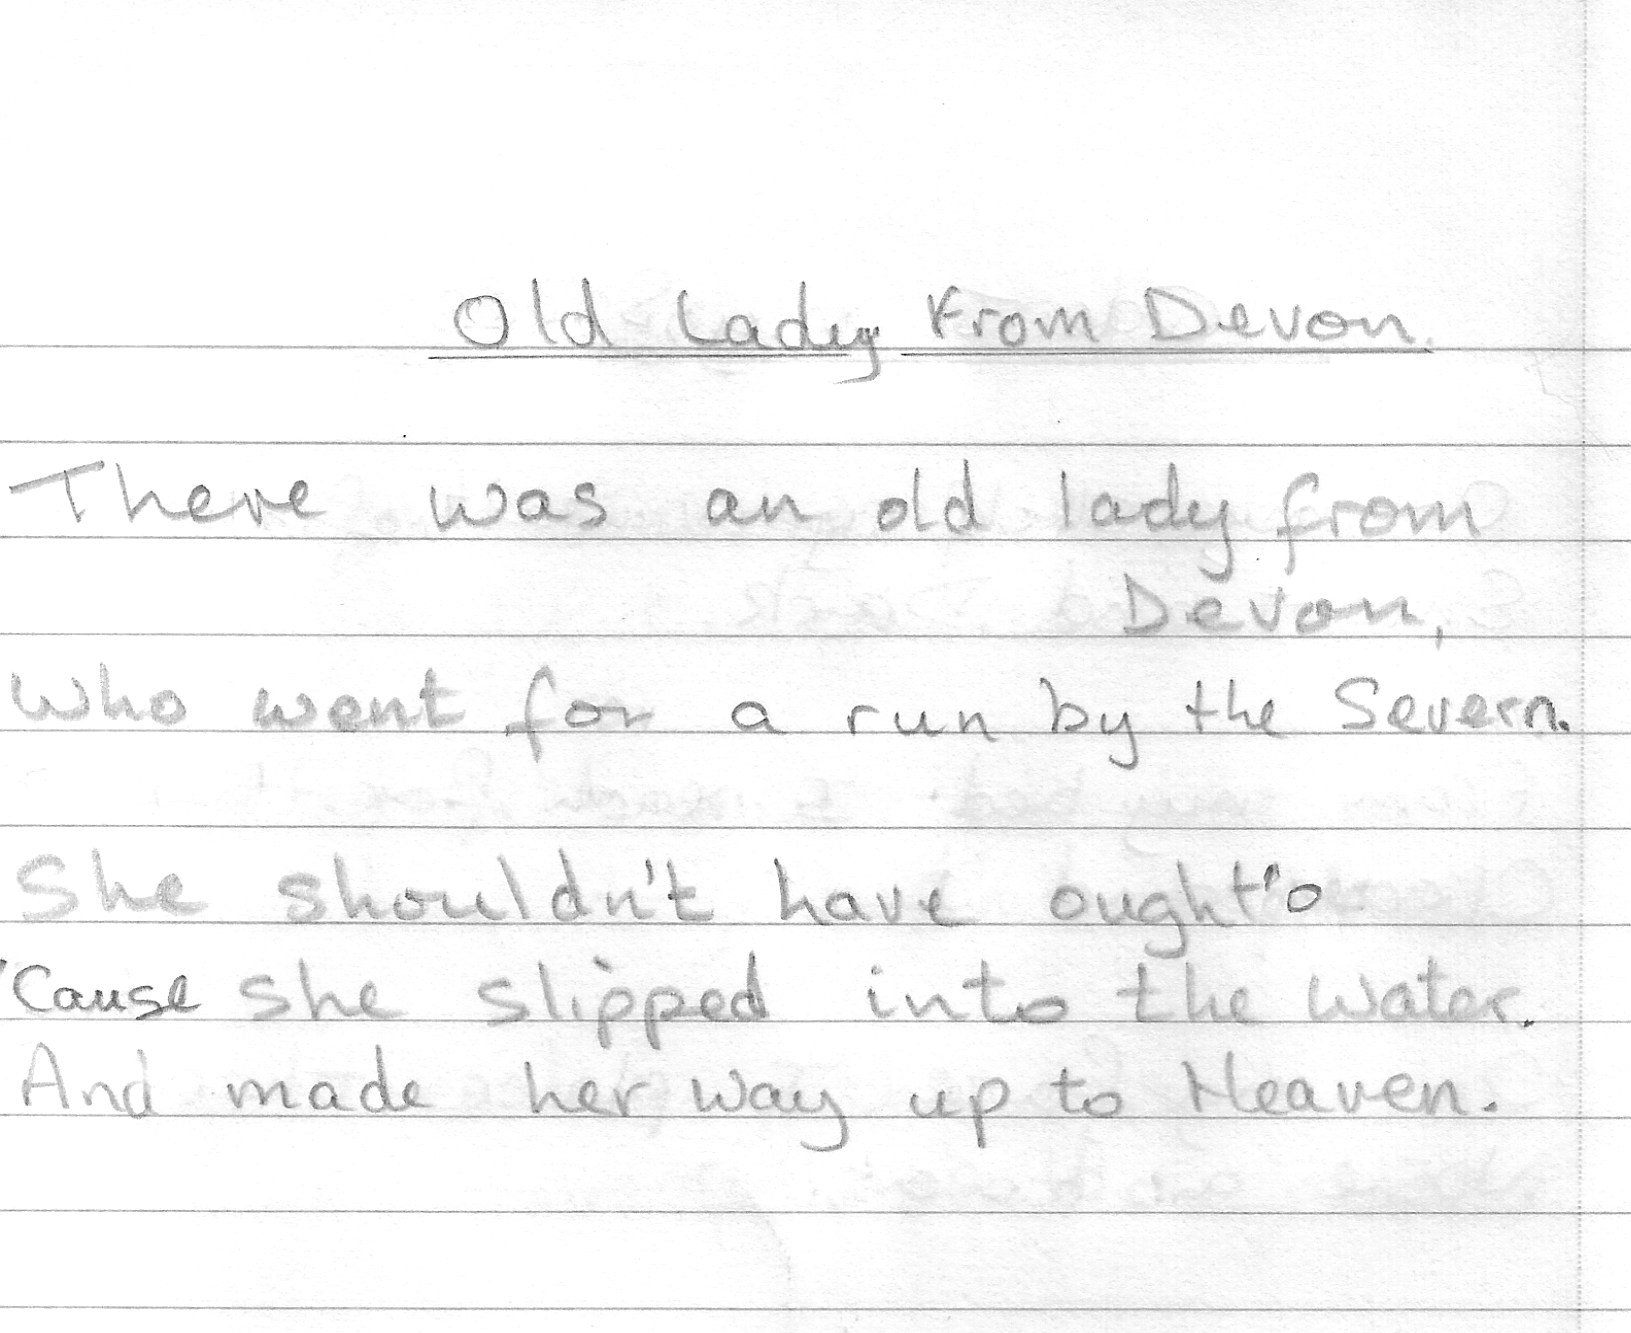 Old Lady From Devon.
There was an old lady from
Devon,
Who went for a run by the Severn.
She shouldn't have ought'o
'Cause she slipped into the water.
And made her way up to Heaven.